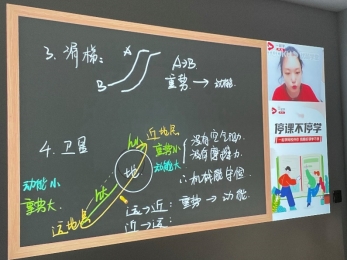 3. 滑梯:
A
B
A→B.
重势 → 动能
4. 卫星
近地点
重势小
动能大
地
动能小
重势大
远地点
没有空气阻力.
没有摩擦力.
∴机械能守恒
远→近: 重势 → 动能
近→远:
停课不停学